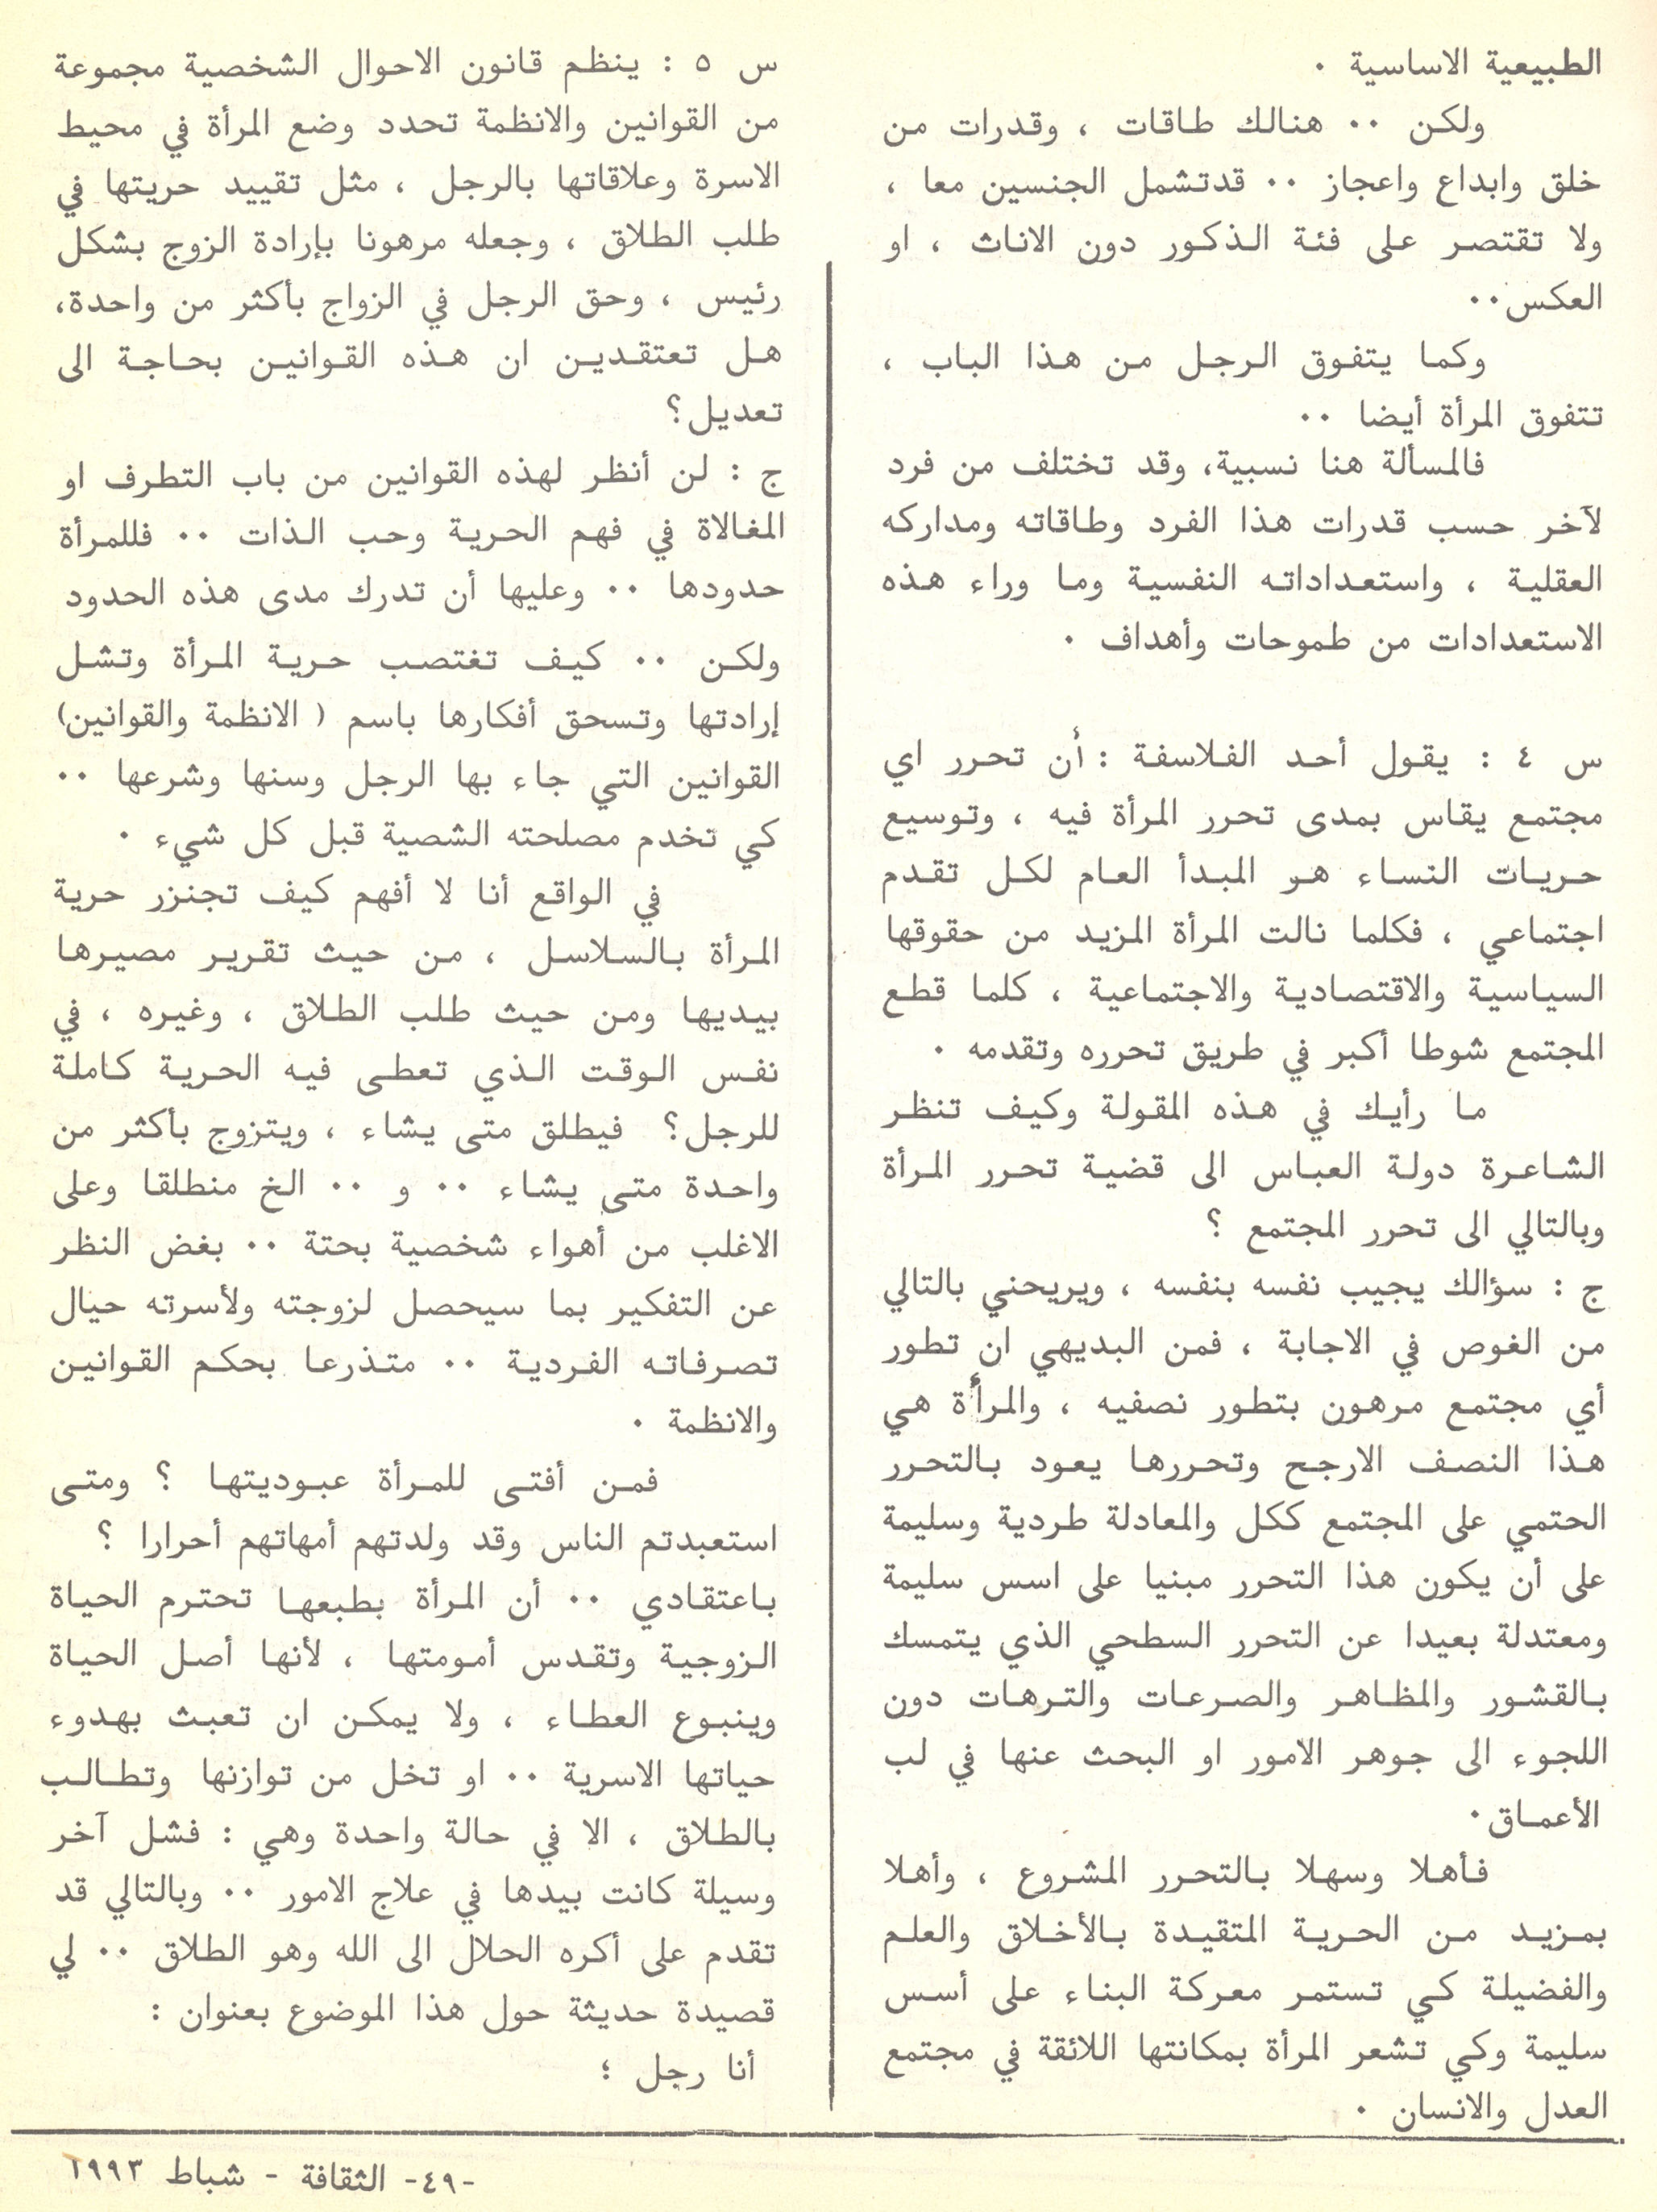 الطبيعية الاساسية ٠
ولكن ٠٠ هنالك طاقات ، وقدرات من
خلق وابداع واعجاز ٠٠ قدتشمل الجنسين معا ،
ولا تقتصر على فئة الذكور دون الاناث ، او
العكس٠٠
وكما يتفوق الرجل من هذا الباب ،
تتفوق المرأة أيضا ٠٠
فالمسألة هنا نسبية، وقد تختلف من فرد
لآخر حسب قدرات هذا الفرد وطاقاته ومداركه
العقلية ، واستعداداته النفسية وما وراء هذه
الاستعدادات من طموحات وأهداف ٠
س ٤ : يقول أحد الفلاسفة : أن تحرر اي
مجتمع يقاس بمدى تحرر المرأة فيه ، وتوسيع
حريات النساء هو المبدأ العام لكل تقدم
اجتماعي ، فكلما نالت المرأة المزيد من حقوقها
السياسية والاقتصادية والاجتماعية ، كلما قطع
المجتمع شوطا أكبر في طريق تحرره وتقدمه ٠
ما رأيك في هذه المقولة وكيف تنظر
الشاعرة دولة العباس الى قضية تحرر المرأة
وبالتالي الى تحرر المجتمع ؟
ج : سؤالك يجيب نفسه بنفسه ، ويريحني بالتالي
من الغوص في الاجابة ، فمن البديهي ان تطور
أي مجتمع مرهون بتطور نصفيه ، والمرأة هي
هذا النصف الارجح وتحررها يعود بالتحرر
الحتمي على المجتمع ككل والمعادلة طردية وسليمة
على أن يكون هذا التحرر مبنيا على اسس سليمة
ومعتدلة بعيدا عن التحرر السطحي الذي يتمسك
بالقشور والمظاهر والصرعات والترهات دون
اللجوء الى جوهر الامور او البحث عنها في لب
الأعماق٠
فأهلا وسهلا بالتحرر المشروع ، وأهلا
بمزيد من الحرية المتقيدة بالأخلاق والعلم
والفضيلة كي تستمر معركة البناء على أسس
سليمة وكي تشعر المرأة بمكانتها اللائقة في مجتمع
العدل والانسان ٠
س ٥ : ينظم قانون الاحوال الشخصية مجموعة
من القوانين والانظمة تحدد وضع المرأة في محيط
الاسرة وعلاقاتها بالرجل ، مثل تقييد حريتها في
طلب الطلاق ، وجعله مرهونا بإرادة الزوج بشكل
رئيس ، وحق الرجل في الزواج بأكثر من واحدة،
هل تعتقدين ان هذه القوانين بحاجة الى
تعديل؟
ج : لن أنظر لهذه القوانين من باب التطرف او
المغالاة في فهم الحرية وحب الذات ٠٠ فللمرأة
حدودها ٠٠ وعليها أن تدرك مدى هذه الحدود
ولكن ٠٠ كيف تغتصب حرية المرأة وتشل
إرادتها وتسحق أفكارها باسم ( الانظمة والقوانين)
القوانين التي جاء بها الرجل وسنها وشرعها ٠٠
كي تخدم مصلحته الشصية قبل كل شيء ٠
في الواقع أنا لا أفهم كيف تجنزر حرية
المرأة بالسلاسل ، من حيث تقرير مصيرها
بيديها ومن حيث طلب الطلاق ، وغيره ، في
نفس الوقت الذي تعطى فيه الحرية كاملة
للرجل؟ فيطلق متى يشاء ، ويتزوج بأكثر من
واحدة متى يشاء ٠٠ و ٠٠ الخ منطلقا وعلى
الاغلب من أهواء شخصية بحتة ٠٠ بغض النظر
عن التفكير بما سيحصل لزوجته ولأسرته حيال
تصرفاته الفردية ٠٠ متذرعا بحكم القوانين
والانظمة ٠
فمن أفتى للمرأة عبوديتها ؟ ومتى
استعبدتم الناس وقد ولدتهم أمهاتهم أحرارا ؟
باعتقادي ٠٠ أن المرأة بطبعها تحترم الحياة
الزوجية وتقدس أمومتها ، لأنها أصل الحياة
وينبوع العطاء ، ولا يمكن ان تعبث بهدوء
حياتها الاسرية ٠٠ او تخل من توازنها وتطالب
بالطلاق ، الا في حالة واحدة وهي : فشل آخر
وسيلة كانت بيدها في علاج الامور ٠٠ وبالتالي قد
تقدم على أكره الحلال الى الله وهو الطلاق ٠٠ لي
قصيدة حديثة حول هذا الموضوع بعنوان :
أنا رجل ؛
-٤٩- الثقافة - شباط ١٩٩٣